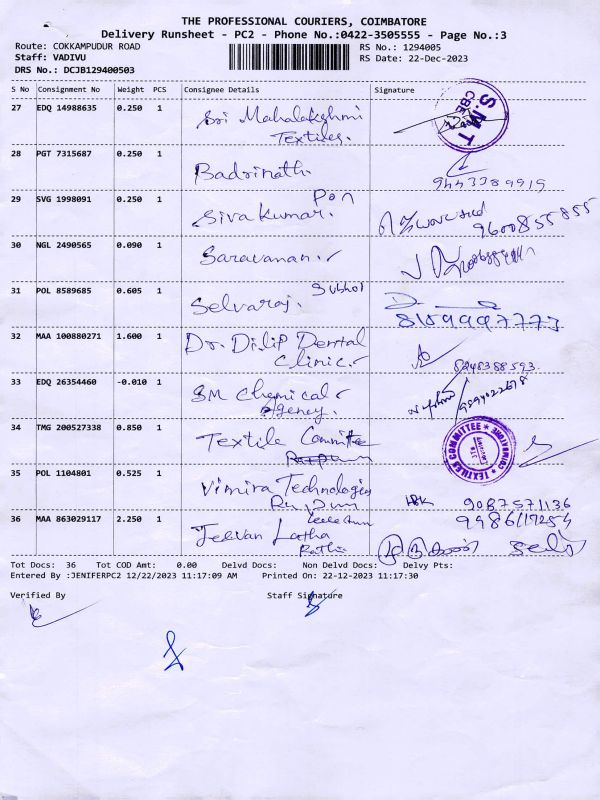 THE PROFESSIONAL COURIERS, COIMBATORE
Delivery Runsheet - PC2 - Phone No.:0422-3505555 - Page No.:3
Route: COKKAMPUDUR ROAD RS No.: 1294005
Staff: VADIVU RS Date: 22-Dec-2023
DRS No.: DCJB129400503
S No Consignment No Weight PCS Consignee Details Signature
27 EDQ 14988635 0.250 1 Sri Mahalakshmi
Textiles. S.M.T CBE
28 PGT 7315687 0.250 1 Badrinath. 9443389919
29 SVG 1998091 0.250 1 Siva Kumar. Pon 9600855855
30 NGL 2490565 0.090 1 Saravanan.
31 POL 8589685 0.605 1 Selvaraj. 8189997773
32 MAA 100880271 1.600 1 Dr. Dilip Dental
Clinic. 8248388593
33 EDQ 26354460 -0.010 1 SM Chemical
Agency.
34 TMG 200527338 0.850 1 Textile Committe
TEXTILES COMMITTEE COIMBATORE
35 POL 1104801 0.525 1 Vimira Technologies
9087571136
36 MAA 863029117 2.250 1 Jeevan Latha
Tot Docs: 36 Tot COD Amt: 0.00 Delvd Docs: Non Delvd Docs: Delvy Pts:
Entered By :JENIFERPC2 12/22/2023 11:17:09 AM Printed On: 22-12-2023 11:17:30
Verified By Staff Signature